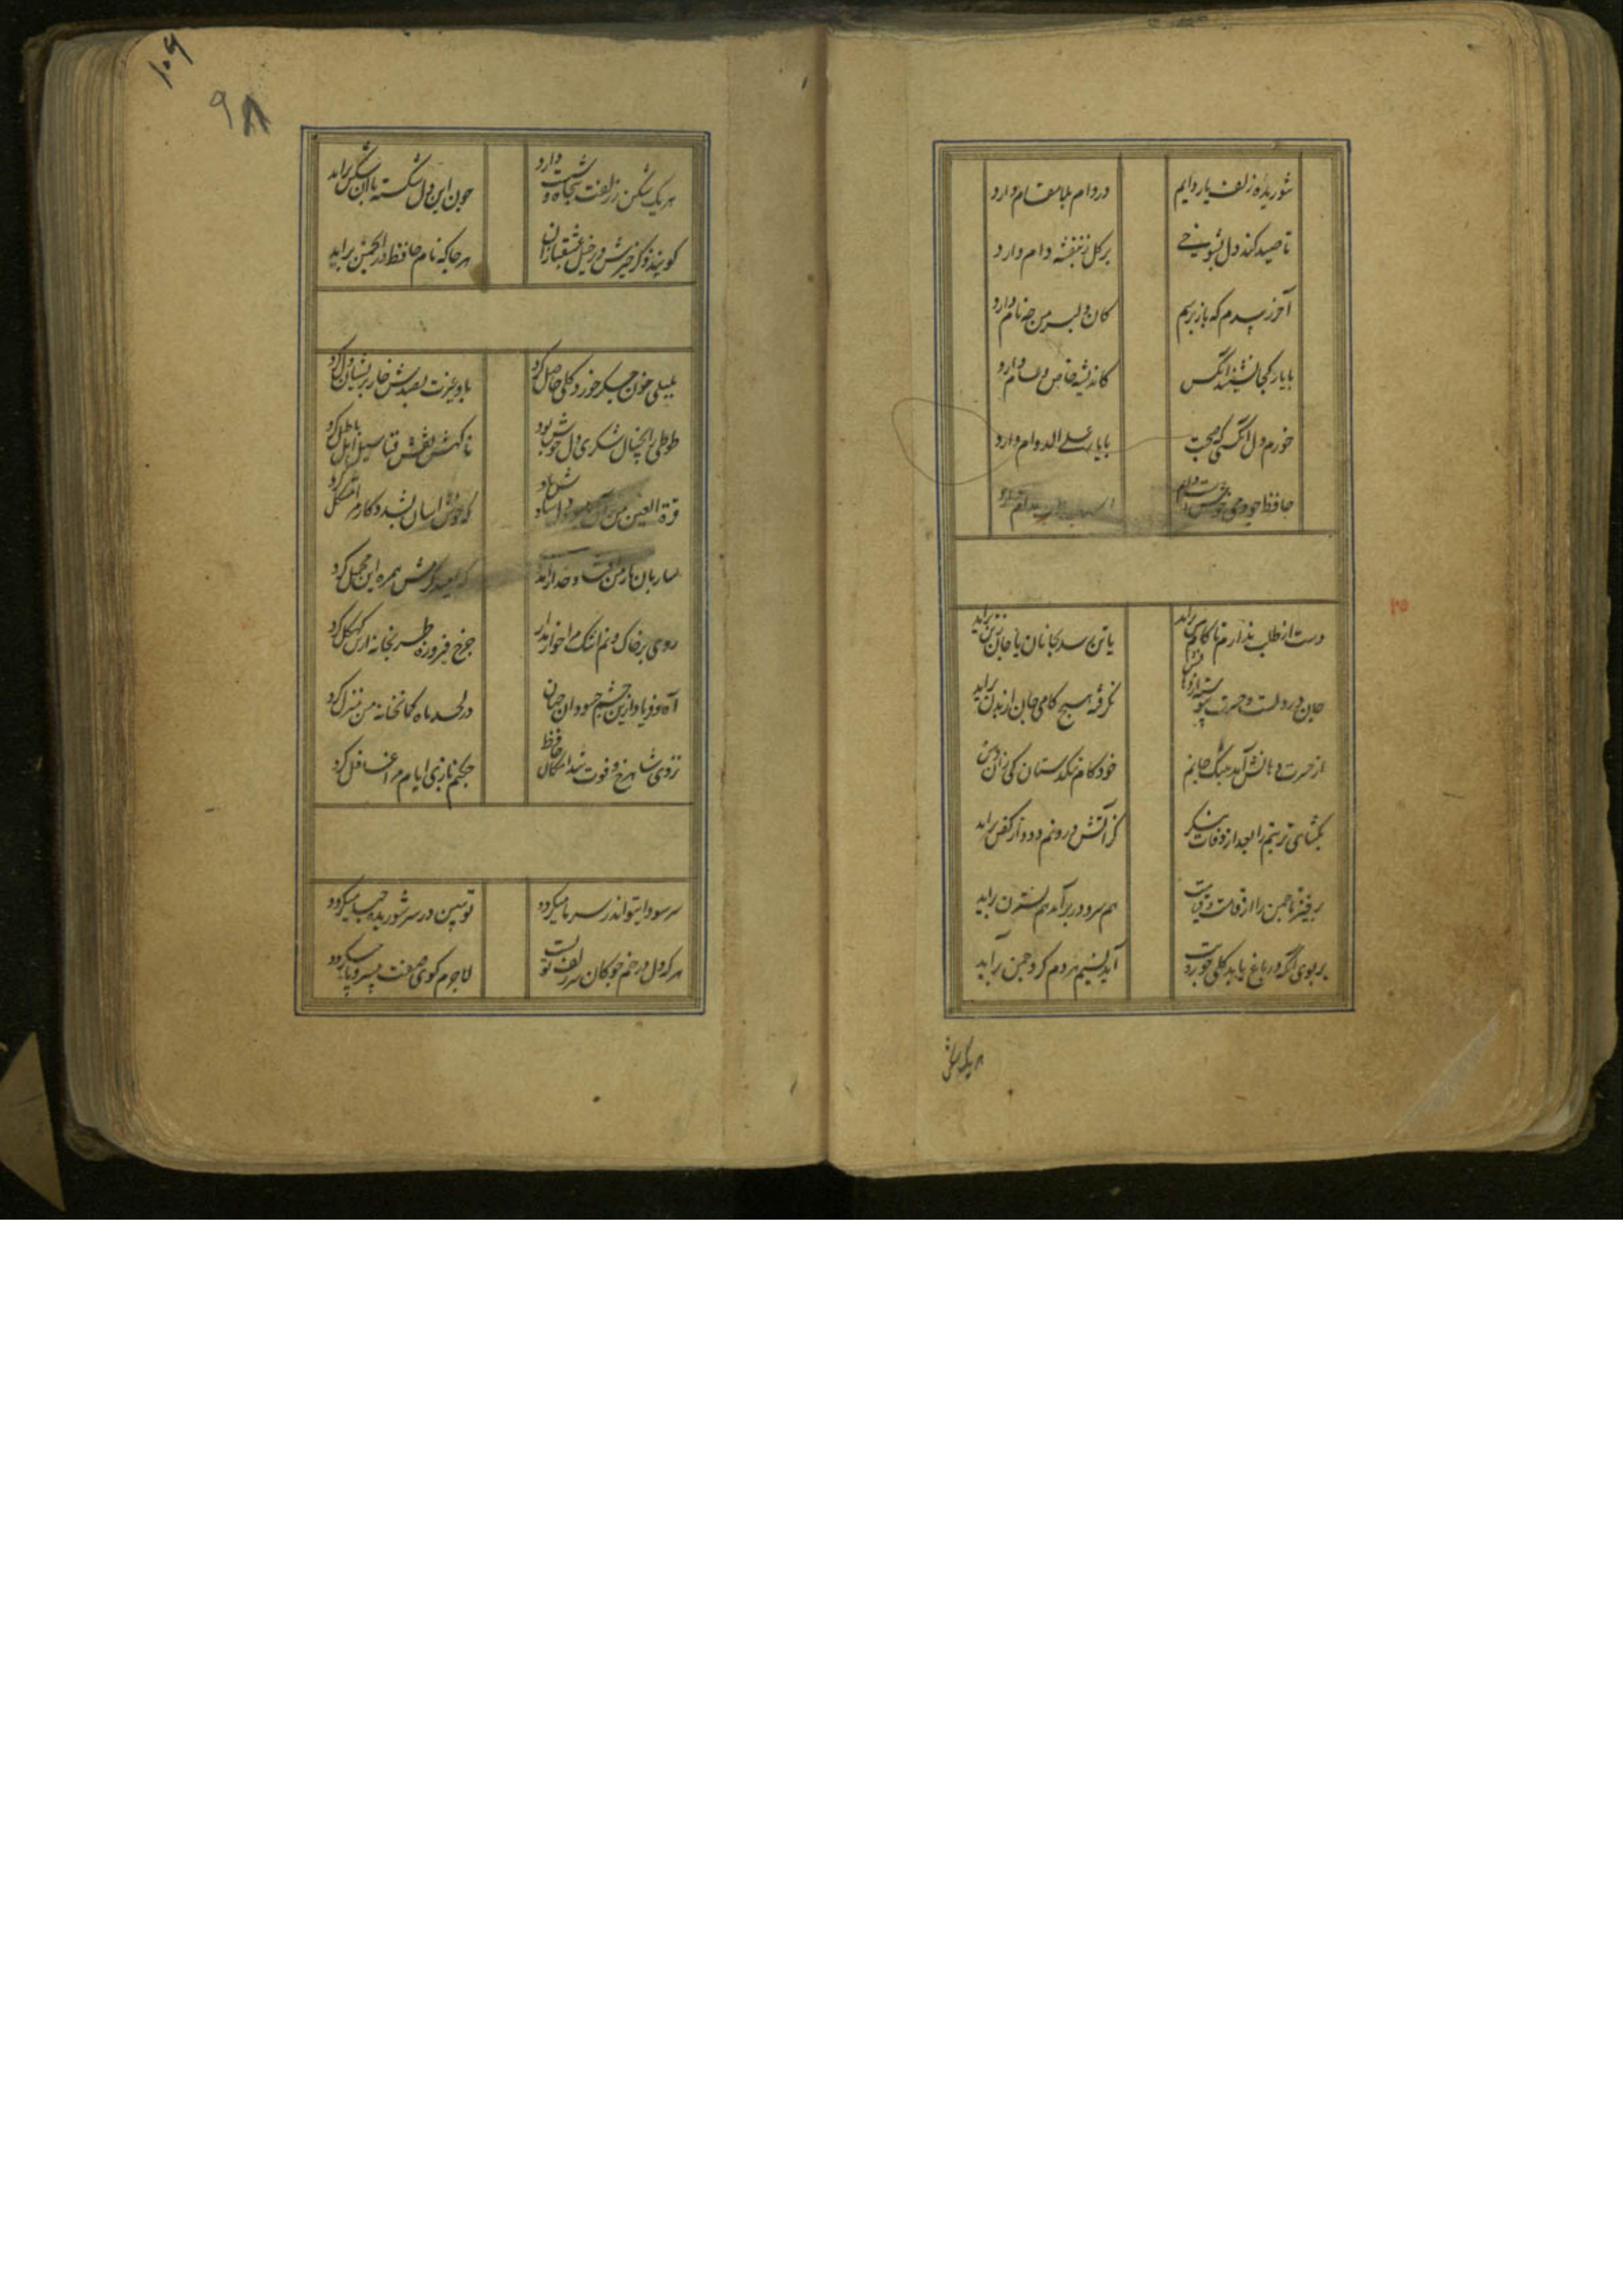 شوریده زلف یار دایم در دام بلا مقام دارد
تا صید کند دل بشوخی بر کل ز بنفشه دام دارد
آخر نرسیدم که بازپرسم کان دلبر من چه نام دارد
با یار کجا نشیند آنکس کاندیشه خاص و عام دارد
خورم دل آنکسی که صحبت با یار علی الدوام دارد
حافظ چو دمی خوشست دایم اسباب طرب مدام دارد
دست از طلب ندارم تا کام من براید یا تن رسد بجانان یا جان ز تن براید
جان در دلست و حسرت پیوسته از دهانش نکرفته هیچ کامی جان از بدن براید
از حسرت دهانش آمد بتنک جانم خود کام تنکدستان کی زان دهن
بکشای تربتم را بعد از وفات بنکر کز آتش درونم دود از کفن براید
برخیز تا چمن را از قامت و قیامت هم سرو در بر آمد هم نسترن براید
بر بوی آنکه در باغ یابد کلی چو رویت آید نسیم هر دم کرد چمن برآید
هر یک شکن
۱۰۹
۹۸
هر یک شکن ز زلفت پنجاه شست دارد چون این دل شکسته با آن شکن براید
کویند ذکر خیرش در خیل عشقبازان هر جا که نام حافظ در انجمن براید
بلبلی خون جکر خورد و کلی حاصل کرد باد غیرت بصدش خار پریشان دل کرد
طوطی را بخیال شکری دل خوش بود ناکهش نقش فنا سیل امل باطل کرد
قرة العین من آن میوه دل یادش باد که خود آسان بشد و کار مرا مشکل کرد
ساربان بار من افتاد خدارا مددی که امید کرمش همره این محمل کرد
روی بر خاک و نم اشک مرا خوار مدار چرخ فیروزه طربخانه ازین کهکل کرد
آه و فریاد ازین چشم حسودان جهان در لحد ماه کمانخانه من منزل کرد
نزدی شاهرخ و فوت شد امکان حافظ چکنم بازی ایام مرا غافل کرد
سر سودای تو اندر سر ما میکردد تو ببین در سر شوریده چها میکردد
هر که دل در خم چوکان سر زلف تو بست لاجرم کوی صفت بی سر و پا میکردد